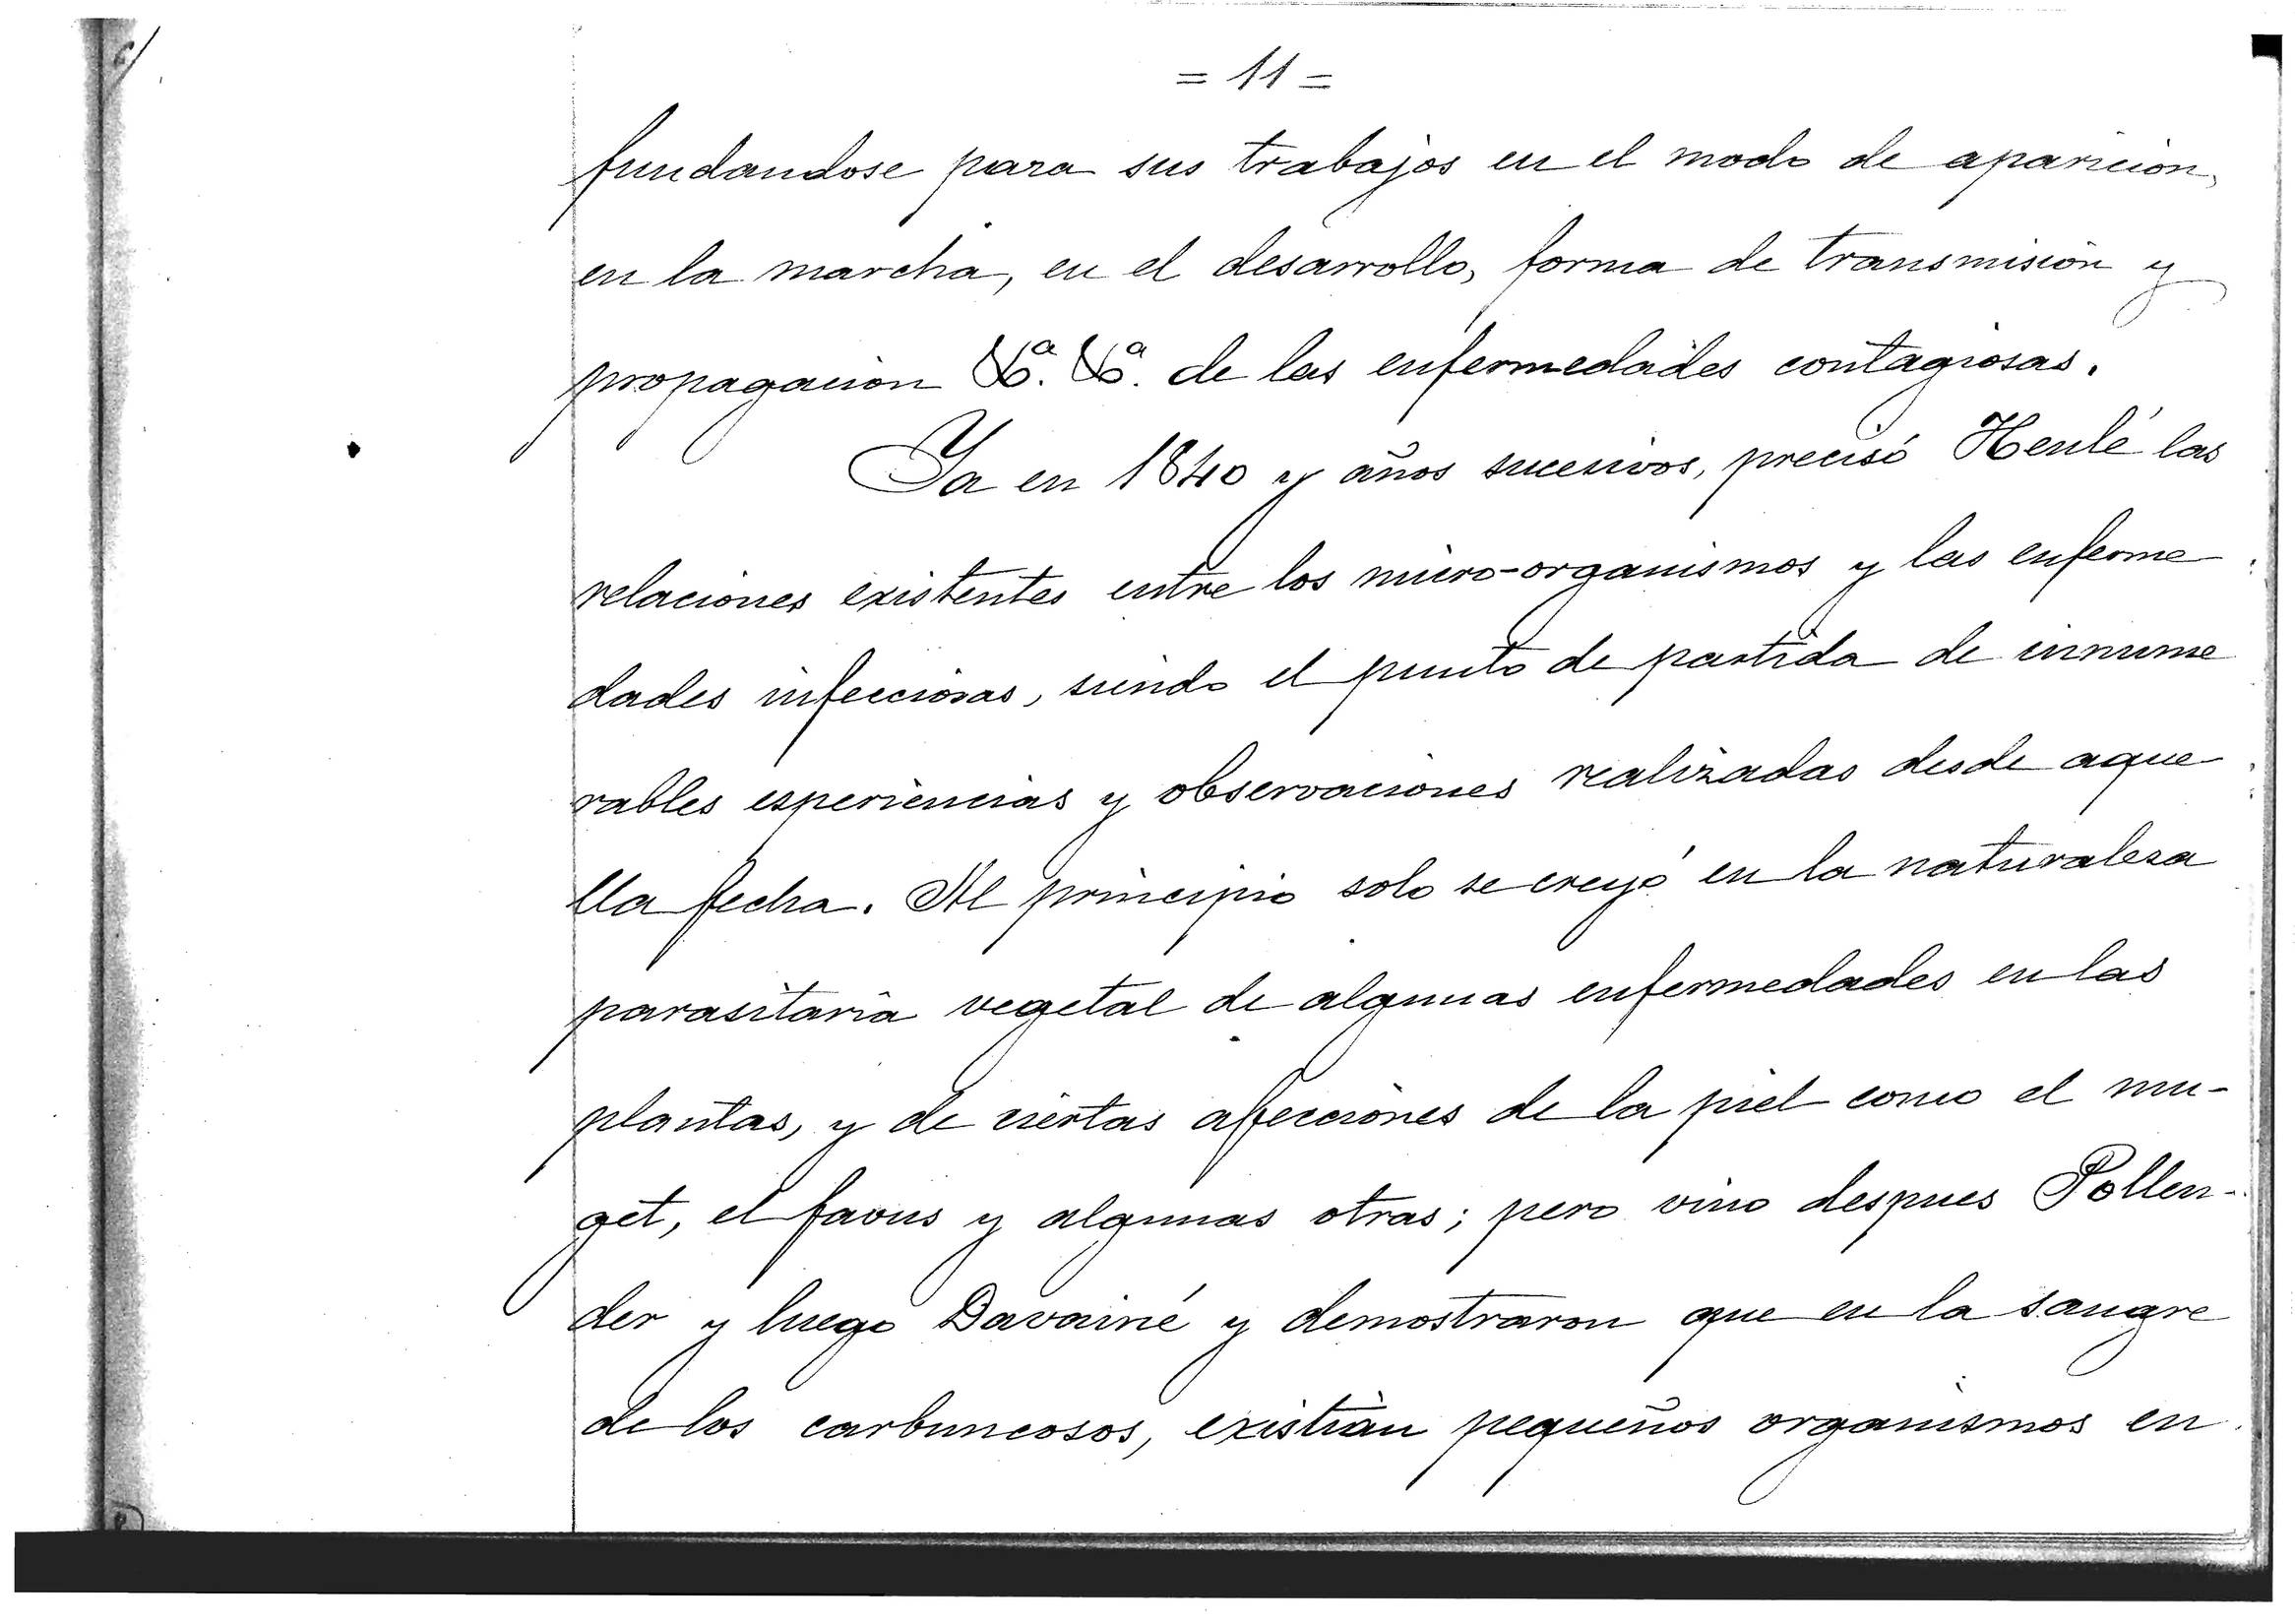 = 11 =
fundandose para sus trabajos en el modo de aparicion,
en la marcha, en el desarrollo, forma de transmision y
propagacion &ª. &ª. de las enfermedades contagiosas.
Ya en 1840 y años sucesivos, precisó Henlé las
relaciones existentes entre los micro-organismos y las enferme
dades infecciosas, siendo el punto de partida de innume
rables esperiencias y observaciones realizadas desde aque
lla fecha. Al principio solo se creyó en la naturaleza
parasitaria vegetal de algunas enfermedades en las
plantas, y de ciertas afecciones de la piel como el mu-
get, el favus y algunas otras; pero vino despues Pollen-
der y luego Davainé y demostraron que en la sangre
de los carbuncosos, existian pequeños organismos en